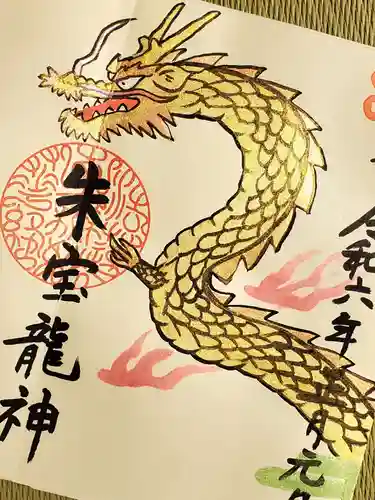 令和六年
正月元
朱宝龍神